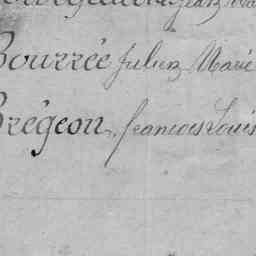 Jean
Bourrée Julien Marie
Brégeon, francois Louis